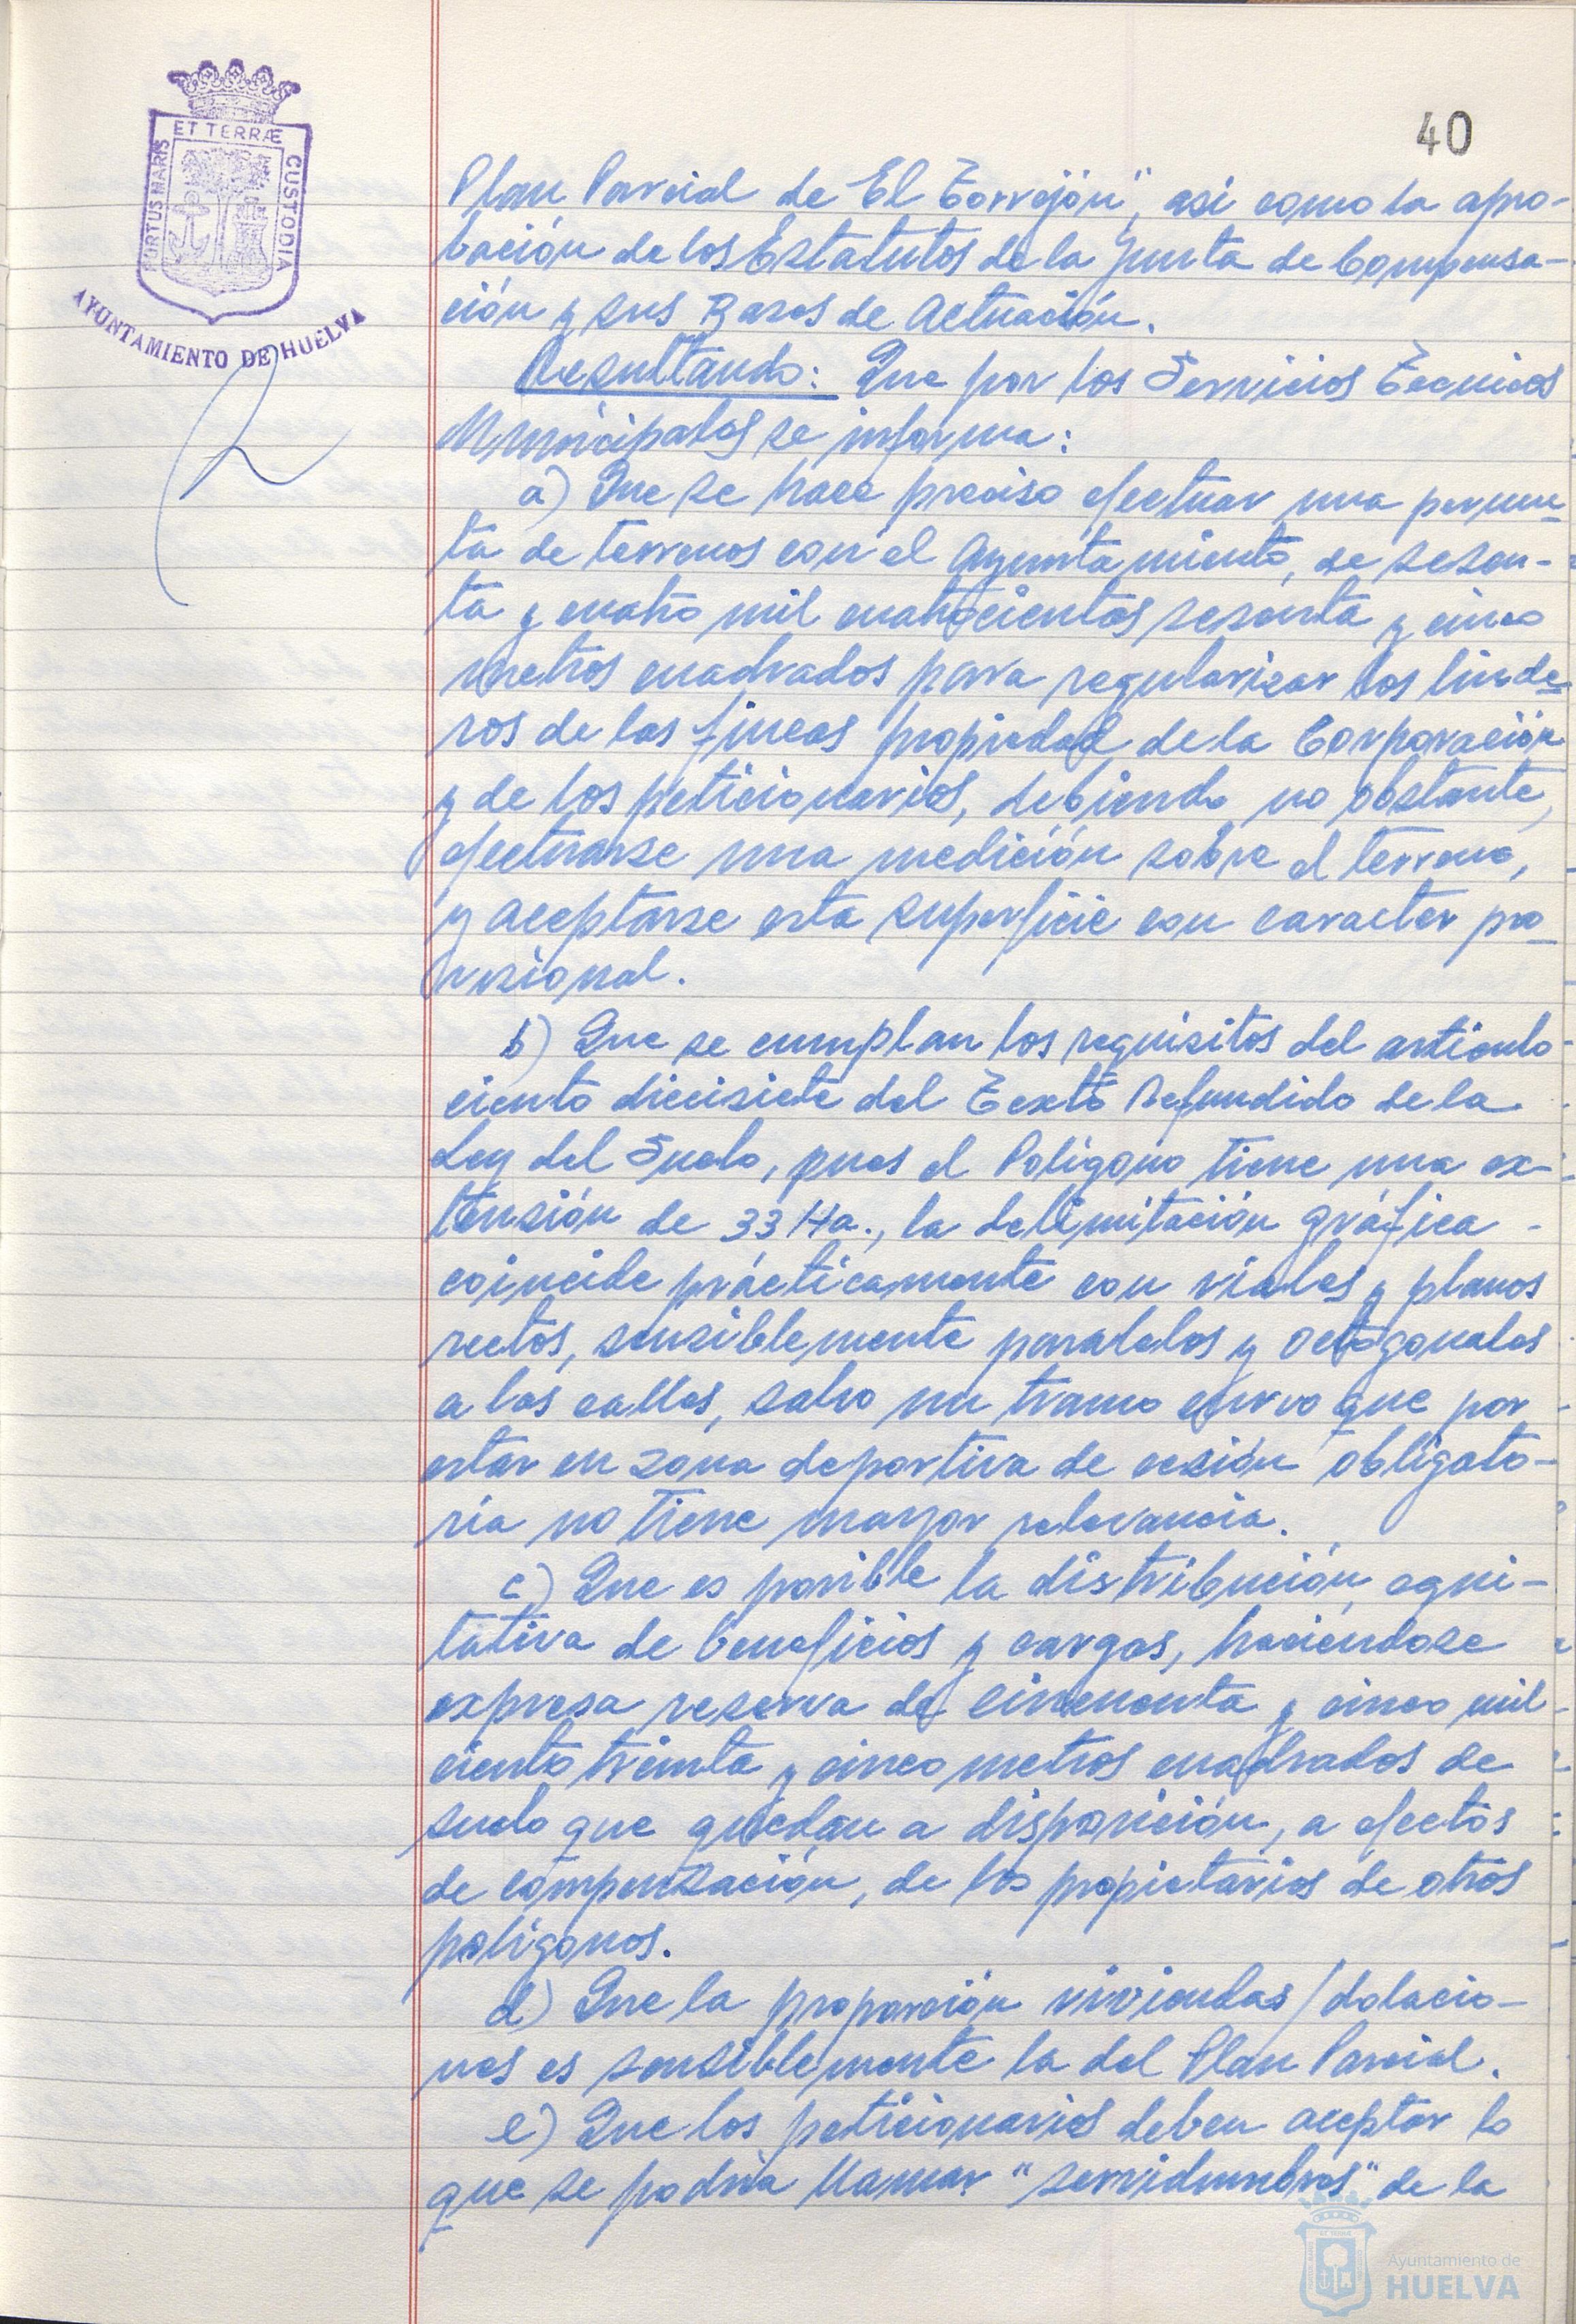 40
ET TERRÆ
PORTUS MARIS
CUSTODIA
AYUNTAMIENTO DE HUELVA
Plan Parcial de "El Torrejón", asi como la apro-
bación de los Estatutos de la Junta de Compensa-
ción y sus Bases de Actuación.
Resultando: Que por los Servicios Tecnicos
Municipales se informa:
a) Que se hace preciso efectuar una permu-
ta de terrenos con el Ayuntamiento, de sesen-
ta y cuatro mil cuatrocientos sesenta y cinco
metros cuadrados para regularizar los linde-
ros de las fincas propiedad de la Corporación
y de los peticionarios, debiendo no obstante,
efectuarse una medición sobre el terreno,
y aceptarse esta superficie con caracter pro-
visional.
b) Que se cumplan los requisitos del articulo
ciento diecisiete del Texto Refundido de la
Ley del Suelo, pues el Poligono tiene una ex-
tensión de 33 Ha., la delimitación gráfica
coincide prácticamente con viales y planos
rectos, sensiblemente paralelos y octogonales
a las calles, salvo un tramo curvo que por
estar en zona deportiva de cesión obligato-
ria no tiene mayor relevancia.
c) Que es posible la distribución equi-
tativa de beneficios y cargas, haciendose
expresa reserva de cincuenta y cinco mil
ciento treinta y cinco metros cuadrados de
suelo que quedan a disposición, a efectos
de compensación, de los propietarios de otros
poligonos.
d) Que la proporción viviendas/dotacio-
nes es sensiblemente la del Plan Parcial.
e) Que los peticionarios deben aceptar lo
que se podria llamar "servidumbres" de la
Ayuntamiento de
HUELVA